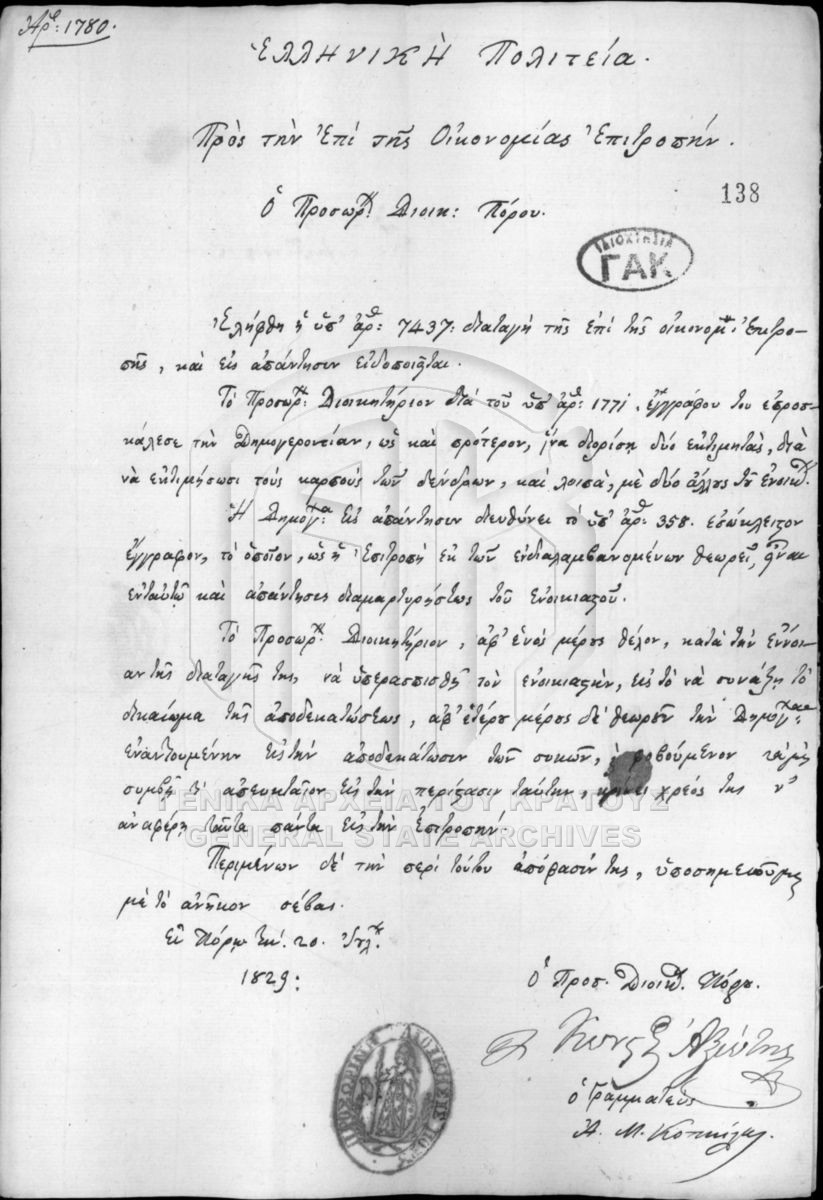 Ἀρ: 1780.
Ἑλληνικὴ Πολιτεία.
Πρὸς τὴν Ἐπὶ τῆς Οἰκονομίας Ἐπιτροπήν.
138
Ὁ Προσωρ: Διοικ: Πόρου.
ΙΔΙΟΚΤΗΣΙΑ
ΓΑΚ
Ἐλήφθη ἡ ὑπ' ἀρ: 7437: διαταγὴ τῆς ἐπὶ τῆς οἰκονομ: Ἐπιτρο-
πῆς, καὶ εἰς ἀπάντησιν εἰδοποιεῖται.
Τὸ Προσωρ: Διοικητήριον διὰ τοῦ ὑπ' ἀρ: 1771. ἐγγράφου του ἐπροσ-
κάλεσε τὴν Δημογεροντίαν, ὡς καὶ πρότερον, ἵνα διορίσῃ δύο ἐκτιμητάς, διὰ
νὰ ἐκτιμήσωσι τοὺς καρποὺς τῶν δένδρων, καὶ λοιπά, μὲ δύο ἄλλους τοῦ ἐνοικ.
Ἡ Δημογ: εἰς ἀπάντησιν διευθύνει τὸ ὑπ' ἀρ: 358. ἐσώκλειστον
ἔγγραφον, τὸ ὁποῖον, ὡς ἡ Ἐπιτροπὴ ἐκ τῶν ἐνδιαλαμβανομένων θεωρεῖ, εἶναι
ἐνταυτῷ καὶ ἀπάντησις διαμαρτυρήσεως τοῦ ἐνοικιαστοῦ.
Τὸ Προσωρ: Διοικητήριον, ἀφ' ἑνὸς μέρους θέλον, κατὰ τὴν ἔννοι-
αν τῆς διαταγῆς της, νὰ ὑπερασπισθῇ τὸν ἐνοικιαστήν, εἰς τὸ νὰ συνάξῃ τὸ
δικαίωμα τῆς ἀποδεκατώσεως, ἀφ' ἑτέρου μέρους δὲ θεωροῦν τὴν Δημογ:
ἐναντιουμένην εἰς τὴν ἀποδεκάτωσιν τῶν συκῶν, φοβούμενον μὴ
συμβῇ τι ἀπευκταῖον εἰς τὴν περίστασιν ταύτην, κρίνει χρέος της ν'
ἀναφέρῃ ταῦτα πάντα εἰς τὴν Ἐπιτροπήν.
ΓΕΝΙΚΑ ΑΡΧΕΙΑ ΤΟΥ ΚΡΑΤΟΥΣ
GENERAL STATE ARCHIVES
Περιμένων δὲ τὴν περὶ τούτου ἀπόφασίν της, ὑποσημειοῦμαι
μὲ τὸ ἀνῆκον σέβας.
Ἐν Πόρῳ τῇ 20. Ἰουλ.
1829:
Ὁ Προσ. Διοικ. Πόρου.
Κωνς Ἀξιώτης
ὁ Γραμματεὺς
Α. Μ.
ΠΡΟΣΩΡΙΝΗ ΔΙΟΙΚΗΣΙΣ